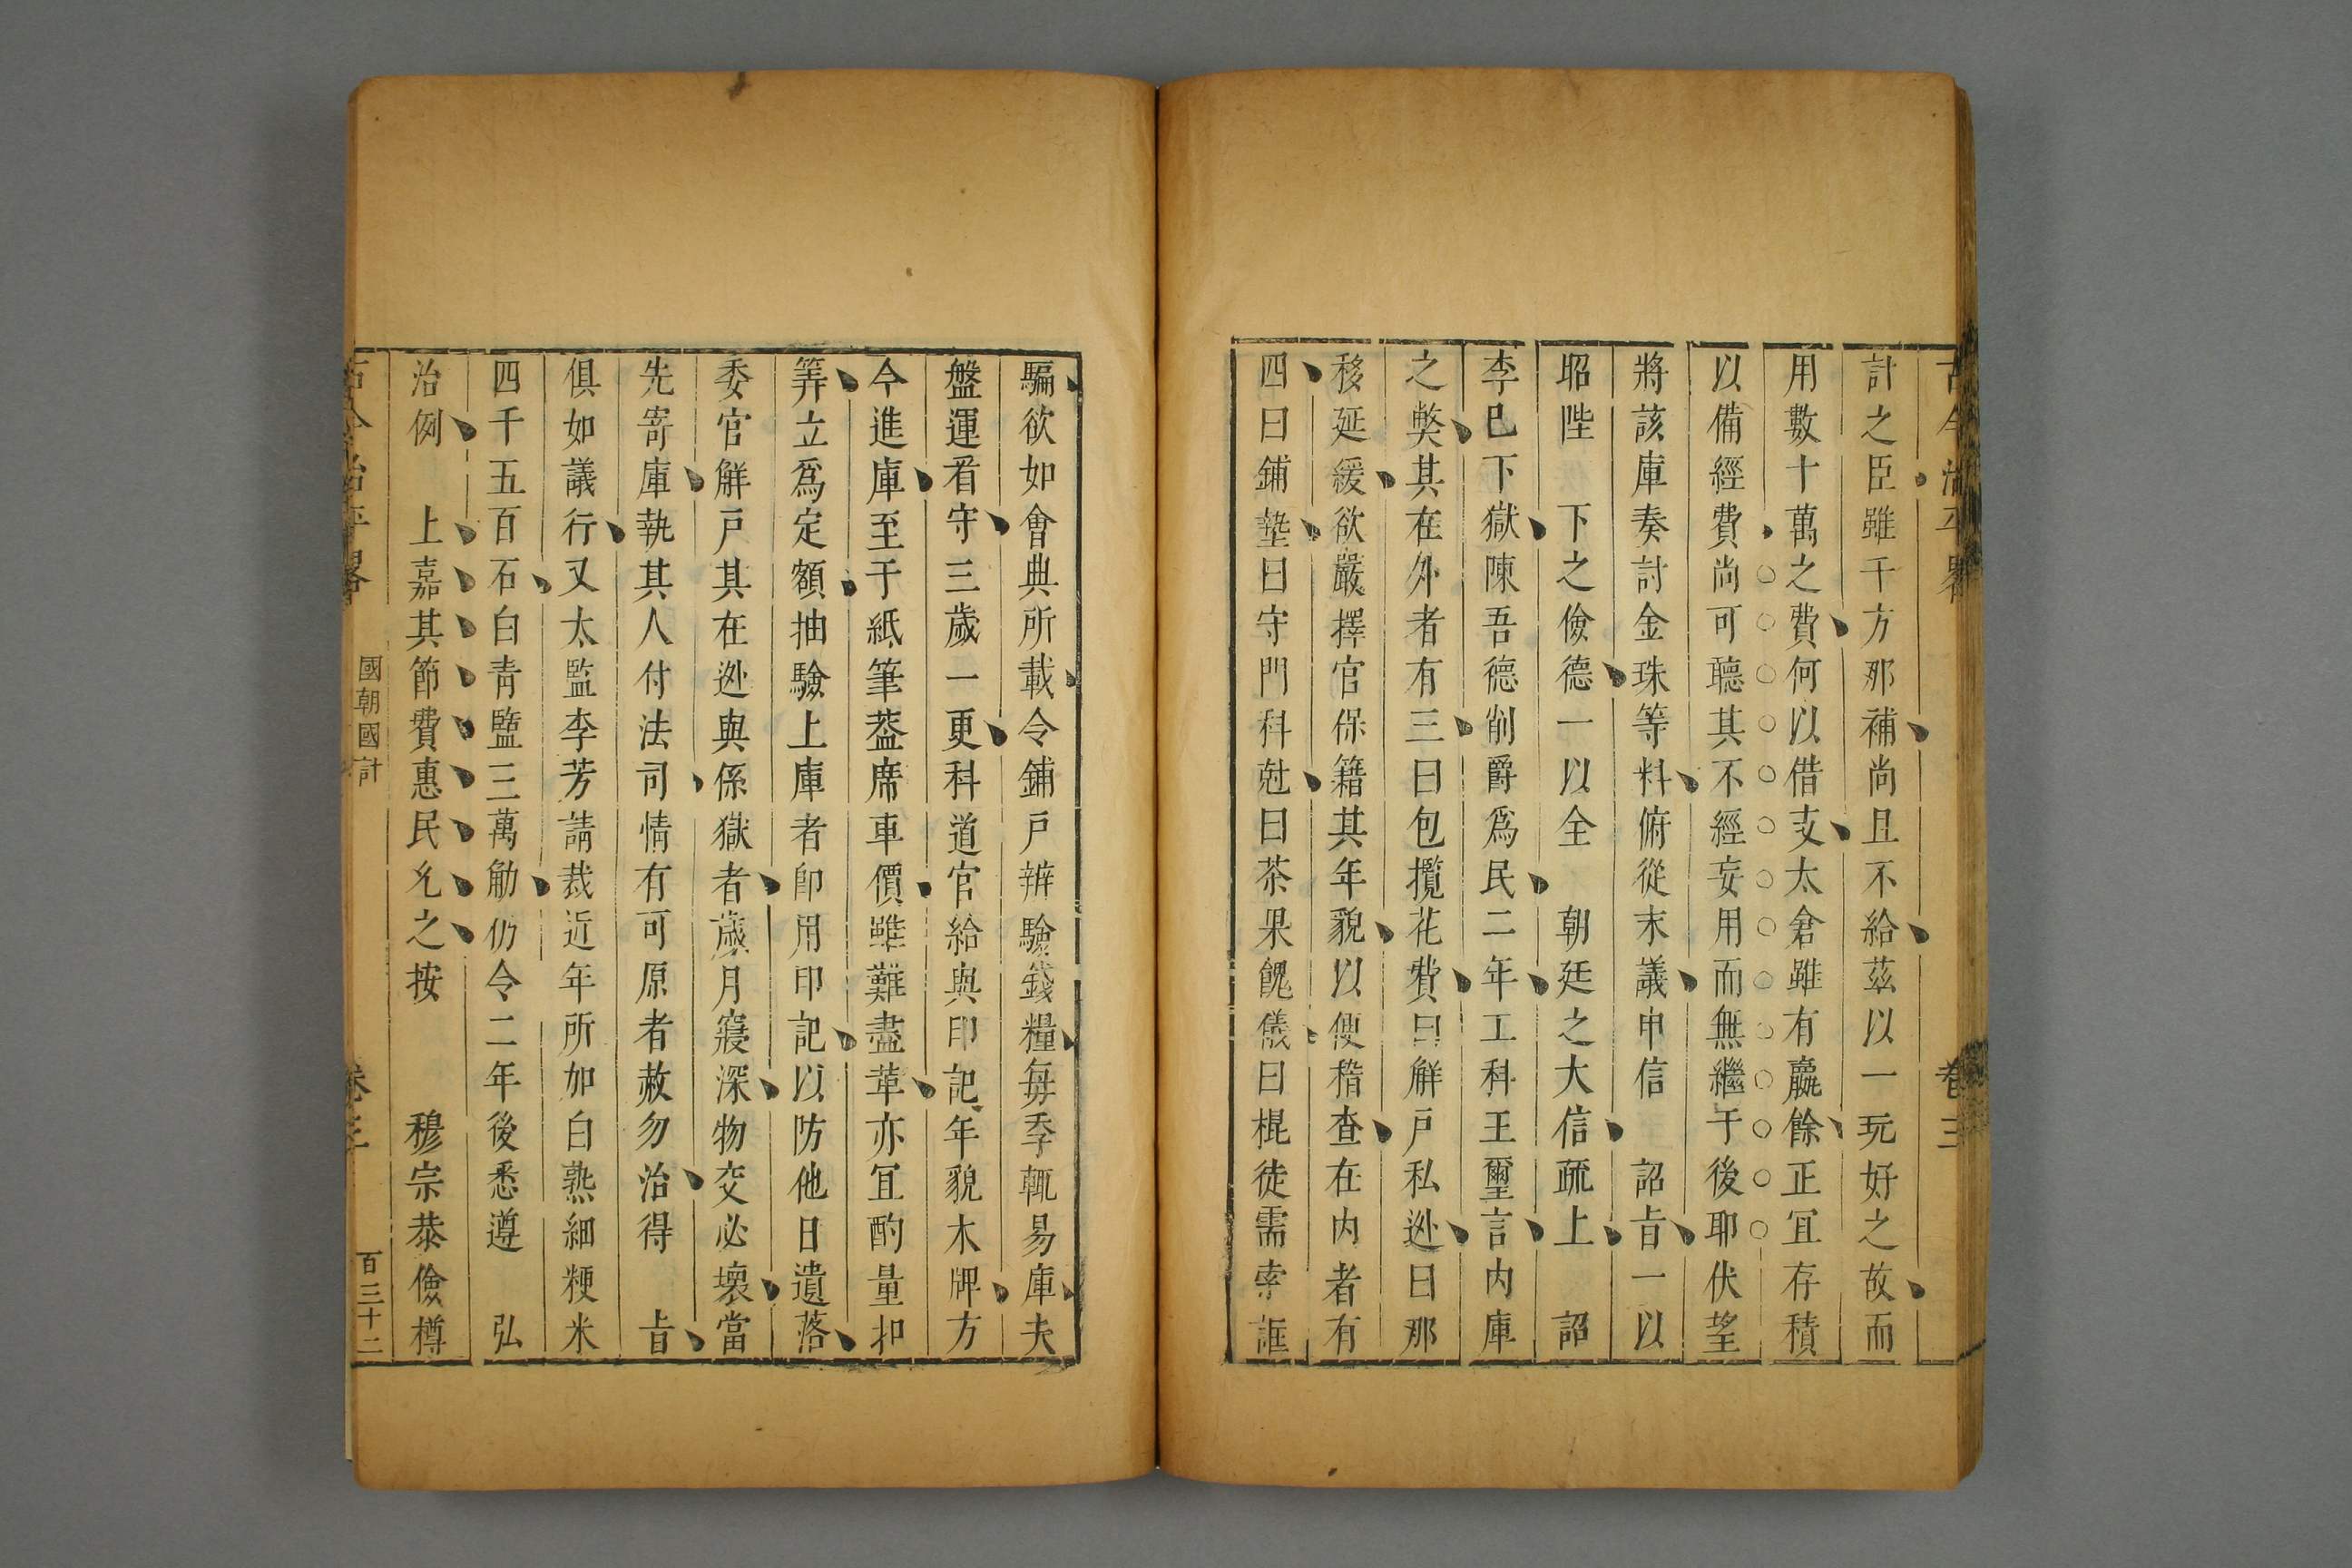 古今治平畧 卷三
計之臣雖千方那補尚且不給茲以一玩好之故而
用數十萬之費何以借支太倉雖有羸餘正冝存積
以備經費尚可聽其不經妄用而無繼于後耶伏望
將該庫奏討金珠等料俯從末議申信 詔㫖一以
昭陛 下之儉德一以全 朝廷之大信疏上 詔
李已下獄陳吾德削爵爲民二年工科王璽言内庫
之獘其在外者有三曰包攬花費曰解戸私逊曰那
移延緩欲嚴擇官保籍其年貌以便稽查在内者有
四曰鋪墊曰守門科尅曰茶果餽儀曰棍徒需索誆
騙欲如會典所載令鋪戸辨驗錢糧每季輒易庫夫
盤運看守三歲一更科道官給與印記年貌木牌方
今進庫至于紙筆葢席車價雖難盡革亦冝酌量扣
筭立爲定額抽驗上庫者卽用印記以防他日遺落
委官解戸其在逊與係獄者歲月寢深物交必壞當
先寄庫執其人付法司情有可原者赦勿治得 㫖
俱如議行又太監李芳請裁近年所加白熟細粳米
四千五百石白靑鹽三萬觔仍令二年後悉遵 弘
治例 上嘉其節費惠民允之按 穆宗恭儉樽
古今治平畧 國朝國計 卷三 百三十二